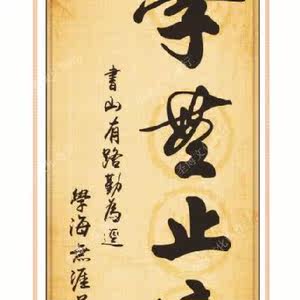 学無止
書山有路勤為逕
學海無涯